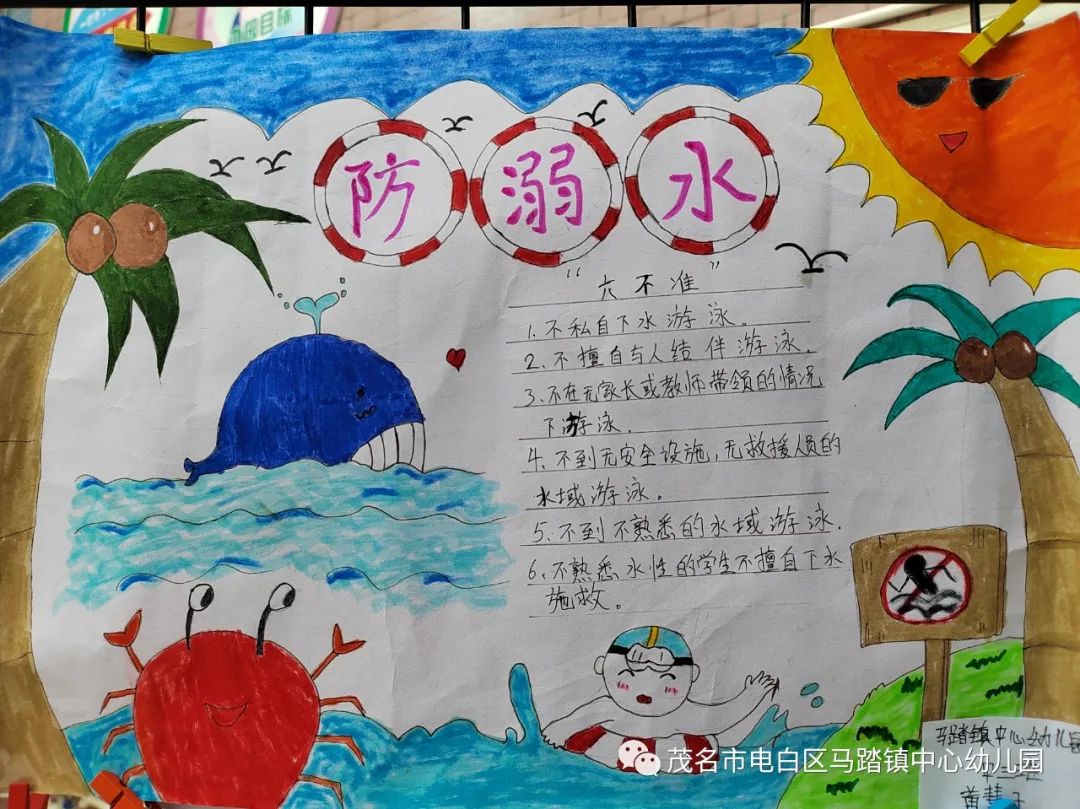 防溺水
“六不准”
1.不私自下水游泳.
2.不擅自与人结伴游泳.
3.不在无家长或教师带领的情况
下游泳.
4.不到无安全设施,无救援人员的
水域游泳。
5.不到不熟悉的水域游泳.
6.不熟悉水性的学生不擅自下水
施救。
马踏镇中心幼儿园
茂名市电白区马踏镇中心幼儿园